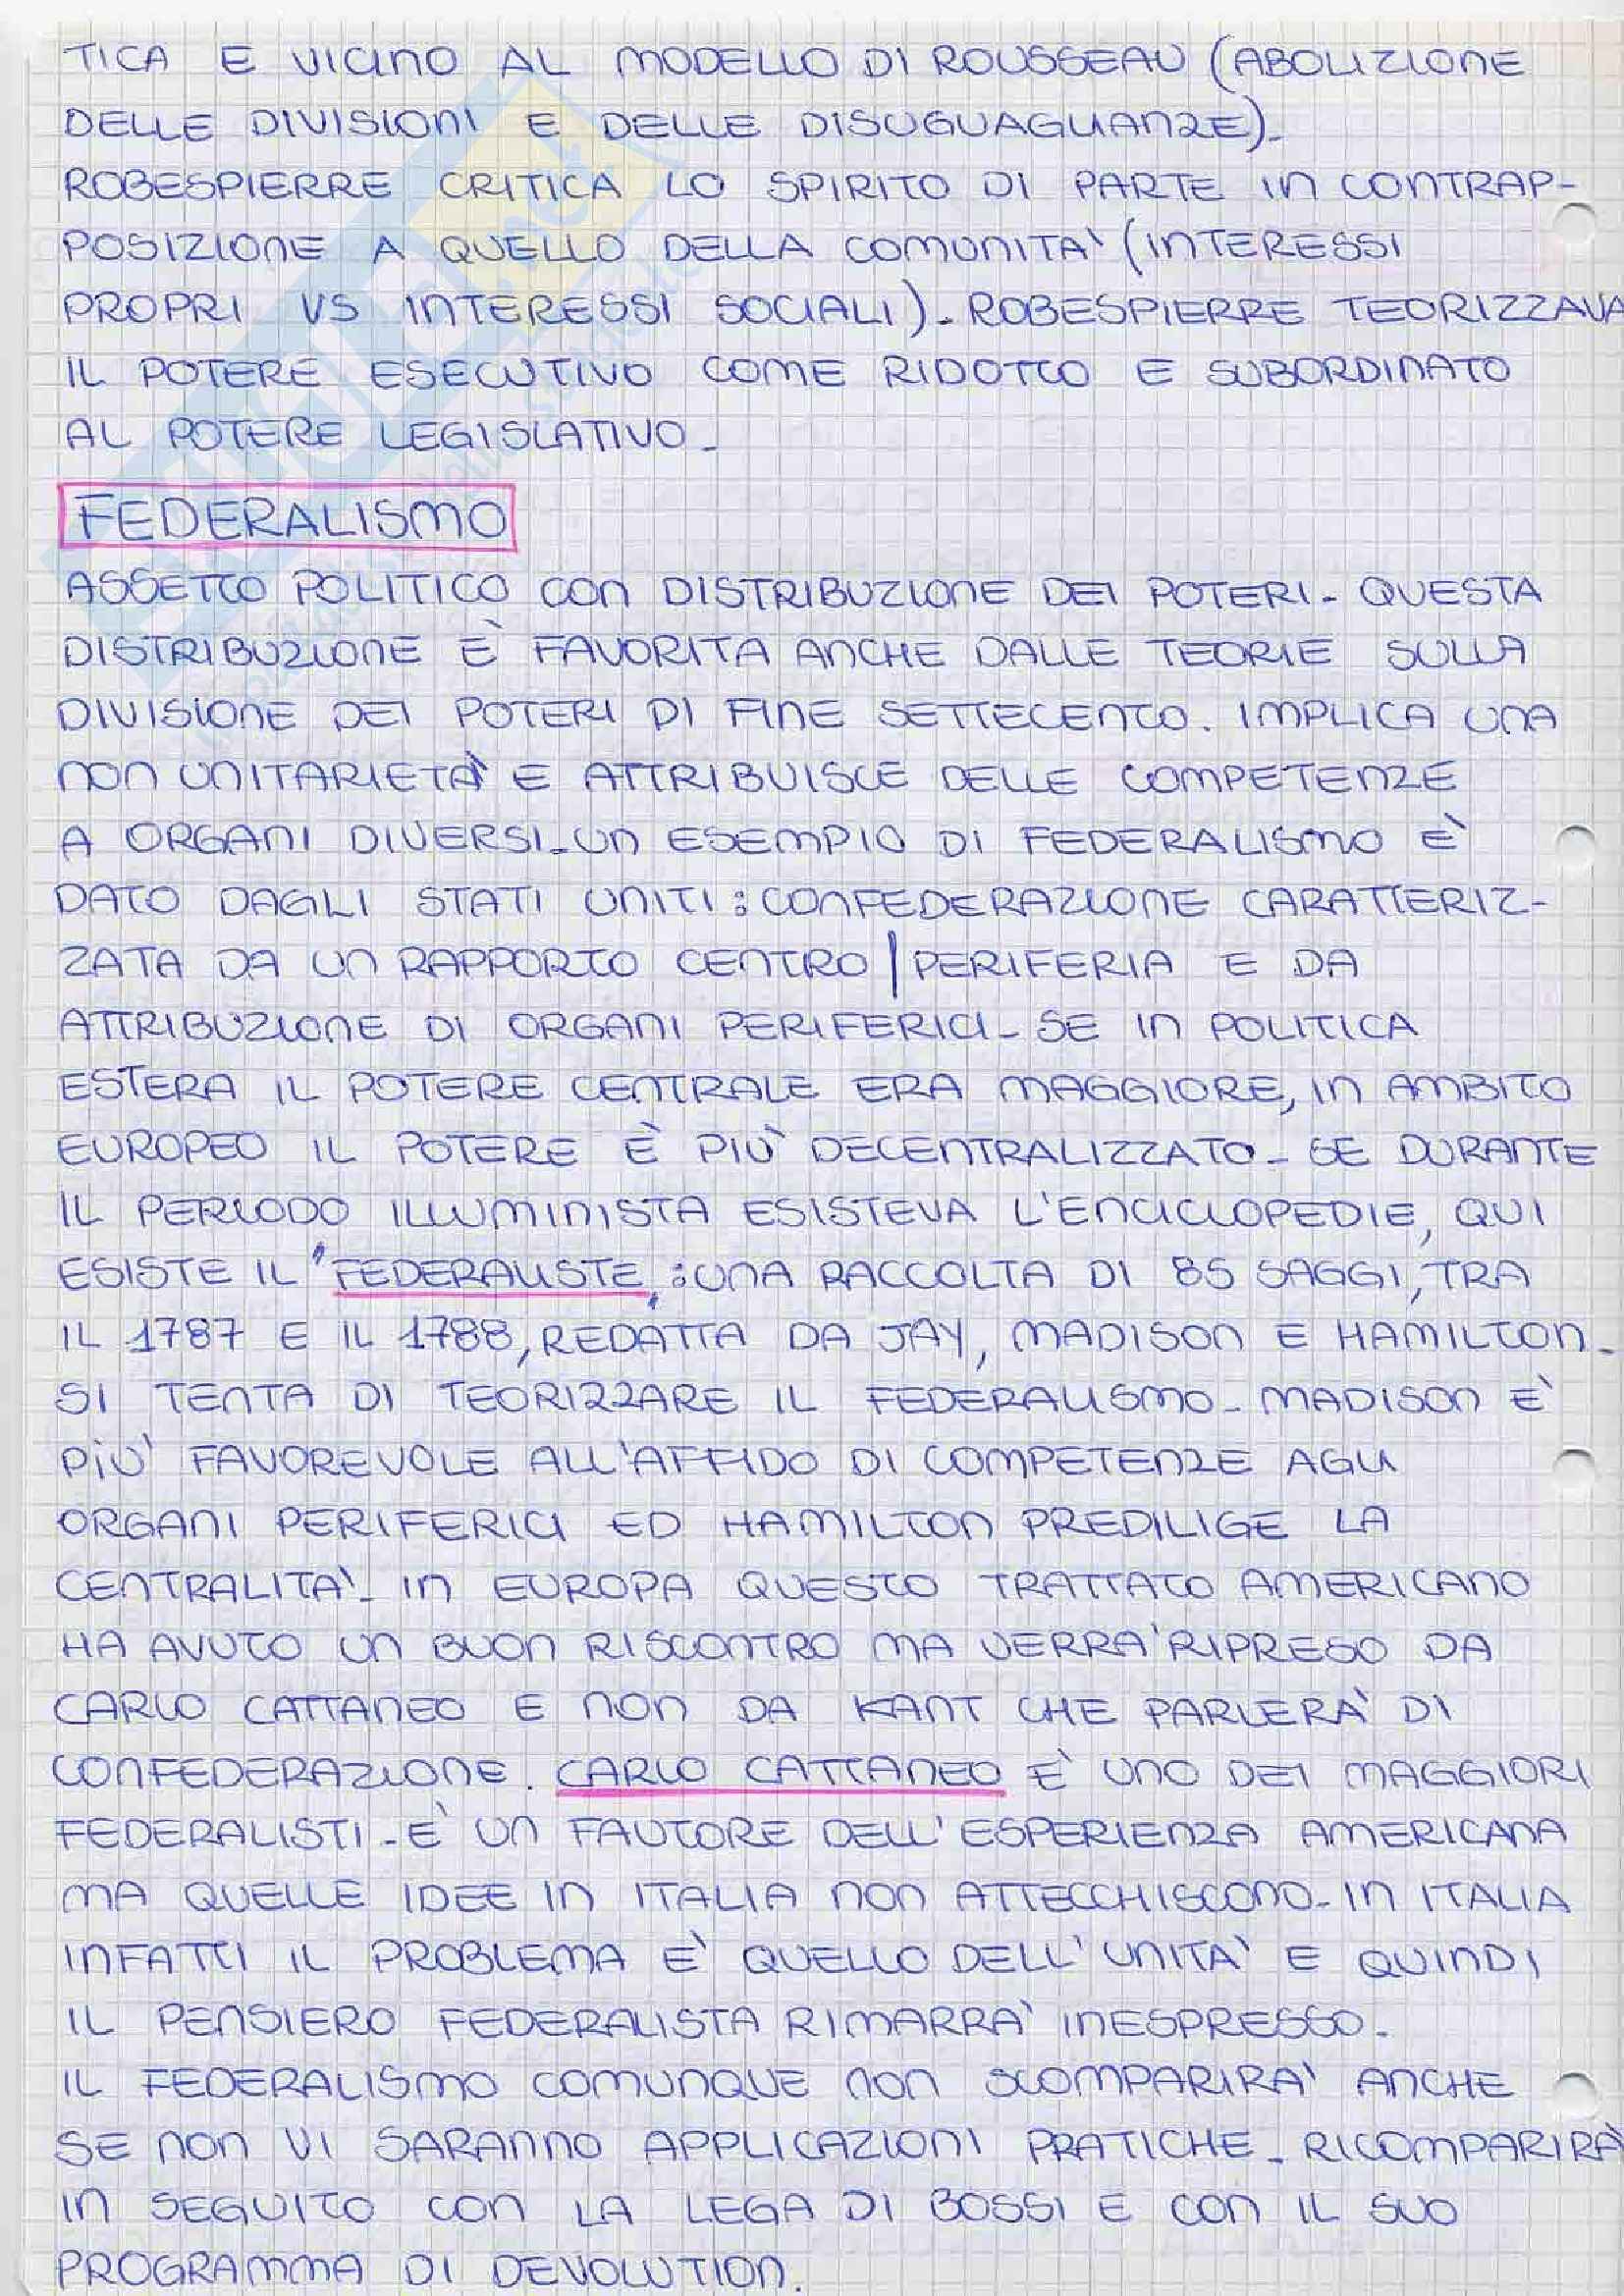 TICA E VICINO AL MODELLO DI ROUSSEAU (ABOLIZIONE
DELLE DIVISIONI E DELLE DISUGUAGLIANZE).
ROBESPIERRE CRITICA LO SPIRITO DI PARTE IN CONTRAP-
POSIZIONE A QUELLO DELLA COMUNITA' (INTERESSI
PROPRI VS INTERESSI SOCIALI). ROBESPIERRE TEORIZZAVA
IL POTERE ESECUTIVO COME RIDOTTO E SUBORDINATO
AL POTERE LEGISLATIVO.
FEDERALISMO
ASSETTO POLITICO CON DISTRIBUZIONE DEI POTERI. QUESTA
DISTRIBUZIONE È FAVORITA ANCHE DALLE TEORIE SULLA
DIVISIONE DEI POTERI DI FINE SETTECENTO. IMPLICA UNA
NON UNITARIETÀ E ATTRIBUISCE DELLE COMPETENZE
A ORGANI DIVERSI. UN ESEMPIO DI FEDERALISMO È
DATO DAGLI STATI UNITI: CONFEDERAZIONE CARATTERIZ-
ZATA DA UN RAPPORTO CENTRO/PERIFERIA E DA
ATTRIBUZIONE DI ORGANI PERIFERICI. SE IN POLITICA
ESTERA IL POTERE CENTRALE ERA MAGGIORE, IN AMBITO
EUROPEO IL POTERE È PIÙ DECENTRALIZZATO. SE DURANTE
IL PERIODO ILLUMINISTA ESISTEVA L'ENCICLOPEDIE, QUI
ESISTE IL "FEDERALISTE": UNA RACCOLTA DI 85 SAGGI, TRA
IL 1787 E IL 1788, REDATTA DA JAY, MADISON E HAMILTON.
SI TENTA DI TEORIZZARE IL FEDERALISMO. MADISON È
PIU' FAVOREVOLE ALL'AFFIDO DI COMPETENZE AGLI
ORGANI PERIFERICI ED HAMILTON PREDILIGE LA
CENTRALITA'. IN EUROPA QUESTO TRATTATO AMERICANO
HA AVUTO UN BUON RISCONTRO MA VERRA' RIPRESO DA
CARLO CATTANEO E NON DA KANT CHE PARLERÀ DI
CONFEDERAZIONE. CARLO CATTANEO È UNO DEI MAGGIORI
FEDERALISTI. E' UN FAUTORE DELL'ESPERIENZA AMERICANA
MA QUELLE IDEE IN ITALIA NON ATTECCHISCONO. IN ITALIA
INFATTI IL PROBLEMA E' QUELLO DELL'UNITA' E QUINDI
IL PENSIERO FEDERALISTA RIMARRA' INESPRESSO.
IL FEDERALISMO COMUNQUE NON SCOMPARIRA' ANCHE
SE NON VI SARANNO APPLICAZIONI PRATICHE. RICOMPARIRÀ
IN SEGUITO CON LA LEGA DI BOSSI E CON IL SUO
PROGRAMMA DI DEVOLUTION.